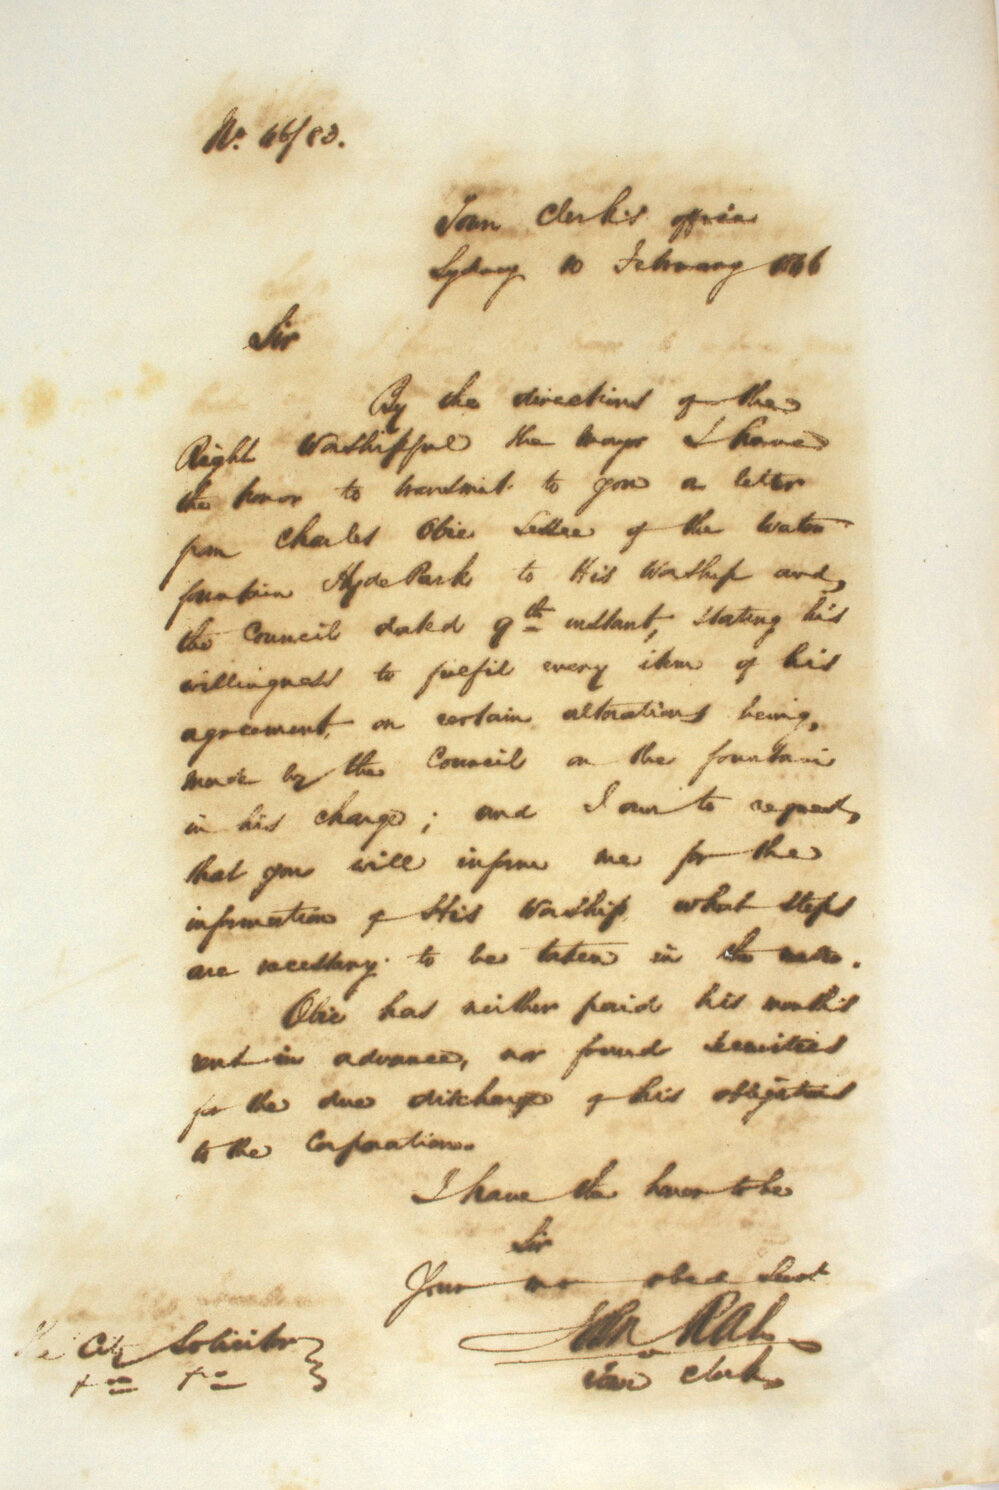 No. 66/83.
Town Clerk's office
Sydney 10 February 1866
Sir
By the directions of the
Right Worshipful the Mayor I have
the honor to transmit to you a letter
from Charles Obie Lessee of the Water
fountain Hyde Park to His Worship and
the Council dated 9th instant, stating his
willingness to fulfil every item of his
agreement, on certain alterations being,
made by the Council on the fountain
in his charge; and I am to request,
that you will inform me for the
information of His Worship what steps
are necessary to be taken in the matter.
Obie has neither paid his month's
rent in advance, nor found securities
for the due discharge of his obligations
to the Corporation.
I have the honor to be
Sir
Your mo obed Servt
John Rae
Town Clerk
The City Solicitor